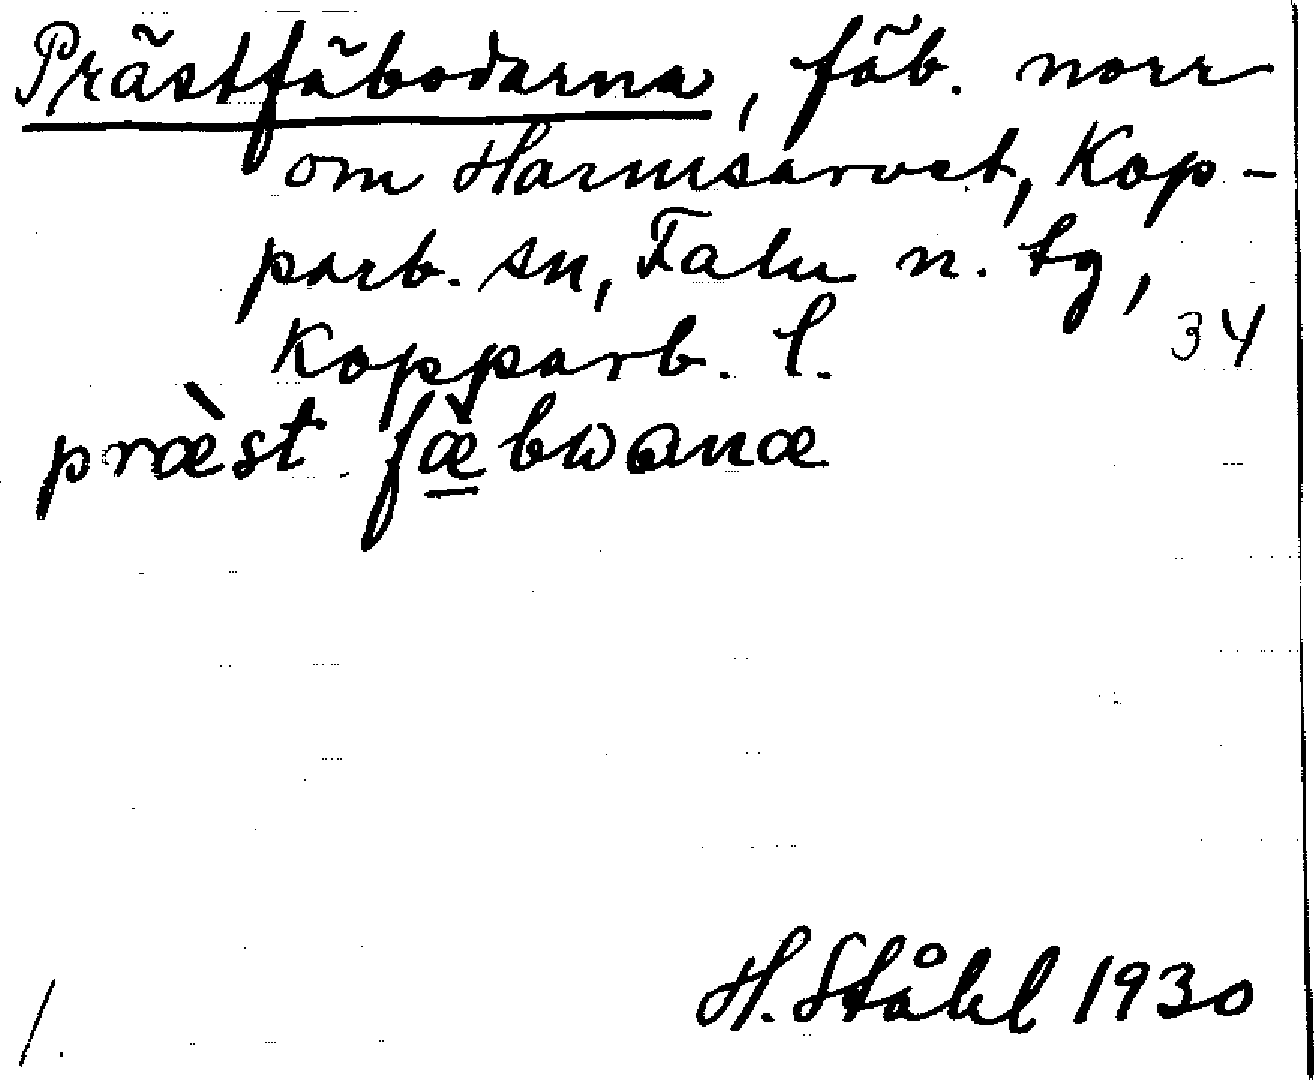 Prästfäbodarna, fäb. norr
om Harmsarvet, Kop-
parb. sn, Falu n. tg,
Kopparb. l.
34
præ̀st fæ̀bωɑnæ
H. Ståhl 1930
/.